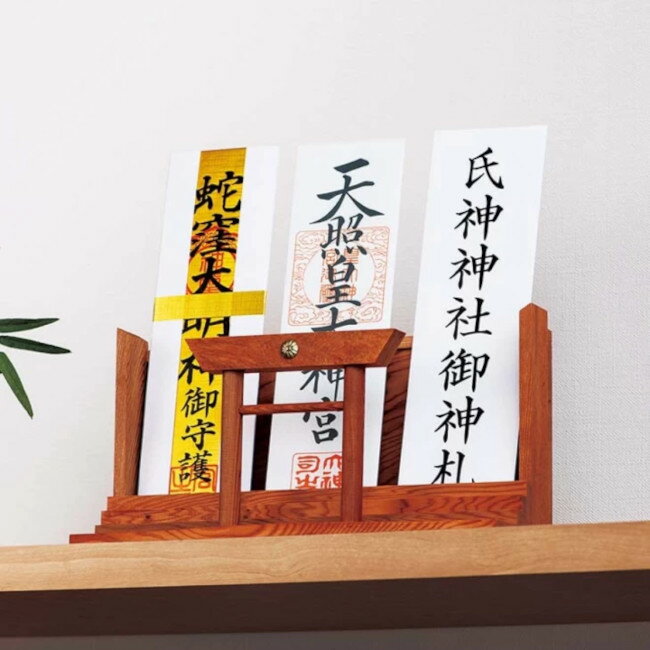 蛇窪大明神御守護
天照皇大神宮
氏神神社御神札